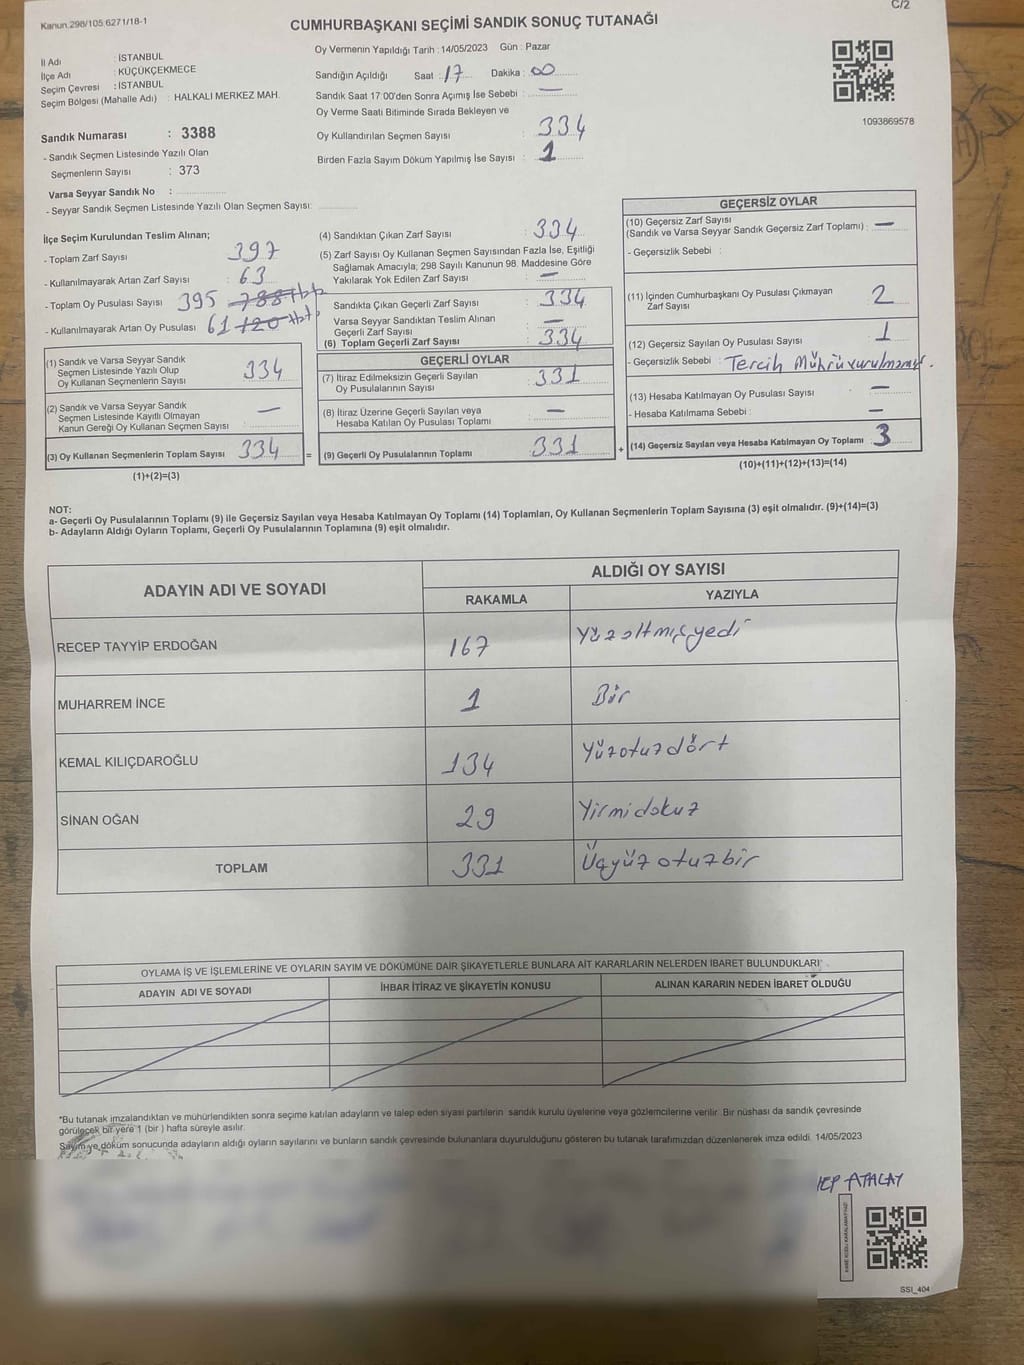 Kanun.298/105:6271/18-1
C/2
CUMHURBAŞKANI SEÇİMİ SANDIK SONUÇ TUTANAĞI
İl Adı : İSTANBUL
İlçe Adı : KÜÇÜKÇEKMECE
Seçim Çevresi : İSTANBUL
Seçim Bölgesi (Mahalle Adı) : HALKALI MERKEZ MAH.
Sandık Numarası : 3388
- Sandık Seçmen Listesinde Yazılı Olan
Seçmenlerin Sayısı : 373
Varsa Seyyar Sandık No :
- Seyyar Sandık Seçmen Listesinde Yazılı Olan Seçmen Sayısı:
Oy Vermenin Yapıldığı Tarih : 14/05/2023 Gün : Pazar
Sandığın Açıldığı Saat : 17 Dakika : 00
Sandık Saat 17:00'den Sonra Açımış İse Sebebi : —
Oy Verme Saati Bitiminde Sırada Bekleyen ve
Oy Kullandırılan Seçmen Sayısı : 334
Birden Fazla Sayım Döküm Yapılmış İse Sayısı : 1
1093869578
İlçe Seçim Kurulundan Teslim Alınan;
- Toplam Zarf Sayısı 397
- Kullanılmayarak Artan Zarf Sayısı : 63
- Toplam Oy Pusulası Sayısı 395 788
- Kullanılmayarak Artan Oy Pusulası 61 120
(1) Sandık ve Varsa Seyyar Sandık
Seçmen Listesinde Yazılı Olup
Oy Kullanan Seçmenlerin Sayısı 334
(2) Sandık ve Varsa Seyyar Sandık
Seçmen Listesinde Kayıtlı Olmayan
Kanun Gereği Oy Kullanan Seçmen Sayısı : —
(3) Oy Kullanan Seçmenlerin Toplam Sayısı 334 =
(1)+(2)=(3)
(4) Sandıktan Çıkan Zarf Sayısı : 334
(5) Zarf Sayısı Oy Kullanan Seçmen Sayısından Fazla İse, Eşitliği
Sağlamak Amacıyla; 298 Sayılı Kanunun 98. Maddesine Göre
Yakılarak Yok Edilen Zarf Sayısı : —
Sandıkta Çıkan Geçerli Zarf Sayısı : 334
Varsa Seyyar Sandıktan Teslim Alınan
Geçerli Zarf Sayısı : —
(6) Toplam Geçerli Zarf Sayısı : 334
GEÇERLİ OYLAR
(7) İtiraz Edilmeksizin Geçerli Sayılan
Oy Pusulalarının Sayısı : 331
(8) İtiraz Üzerine Geçerli Sayılan veya
Hesaba Katılan Oy Pusulası Toplamı : —
(9) Geçerli Oy Pusulalarının Toplamı : 331 +
GEÇERSİZ OYLAR
(10) Geçersiz Zarf Sayısı
(Sandık ve Varsa Seyyar Sandık Geçersiz Zarf Toplamı) : —
- Geçersizlik Sebebi :
(11) İçinden Cumhurbaşkanı Oy Pusulası Çıkmayan
Zarf Sayısı : 2
(12) Geçersiz Sayılan Oy Pusulası Sayısı : 1
- Geçersizlik Sebebi : Tercih Mührü vurulmamış.
(13) Hesaba Katılmayan Oy Pusulası Sayısı : —
- Hesaba Katılmama Sebebi : —
(14) Geçersiz Sayılan veya Hesaba Katılmayan Oy Toplamı : 3
(10)+(11)+(12)+(13)=(14)
NOT:
a- Geçerli Oy Pusulalarının Toplamı (9) ile Geçersiz Sayılan veya Hesaba Katılmayan Oy Toplamı (14) Toplamları, Oy Kullanan Seçmenlerin Toplam Sayısına (3) eşit olmalıdır. (9)+(14)=(3)
b- Adayların Aldığı Oyların Toplamı, Geçerli Oy Pusulalarının Toplamına (9) eşit olmalıdır.
ADAYIN ADI VE SOYADI
ALDIĞI OY SAYISI
RAKAMLA YAZIYLA
RECEP TAYYİP ERDOĞAN 167 Yüzaltmışyedi
MUHARREM İNCE 1 Bir
KEMAL KILIÇDAROĞLU 134 Yüzotuzdört
SİNAN OĞAN 29 Yirmidokuz
TOPLAM 331 Üçyüzotuzbir
OYLAMA İŞ VE İŞLEMLERİNE VE OYLARIN SAYIM VE DÖKÜMÜNE DAİR ŞİKAYETLERLE BUNLARA AİT KARARLARIN NELERDEN İBARET BULUNDUKLARI*
ADAYIN ADI VE SOYADI İHBAR İTİRAZ VE ŞİKAYETİN KONUSU ALINAN KARARIN NEDEN İBARET OLDUĞU
*Bu tutanak imzalandıktan ve mühürlendikten sonra seçime katılan adayların ve talep eden siyasi partilerin sandık kurulu üyelerine veya gözlemcilerine verilir. Bir nüshası da sandık çevresinde
görülecek bir yere 1 (bir ) hafta süreyle asılır.
Sayım ve döküm sonucunda adayların aldığı oyların sayılarını ve bunların sandık çevresinde bulunanlara duyurulduğunu gösteren bu tutanak tarafımızdan düzenlenerek imza edildi. 14/05/2023
ATALAY
SSI_404